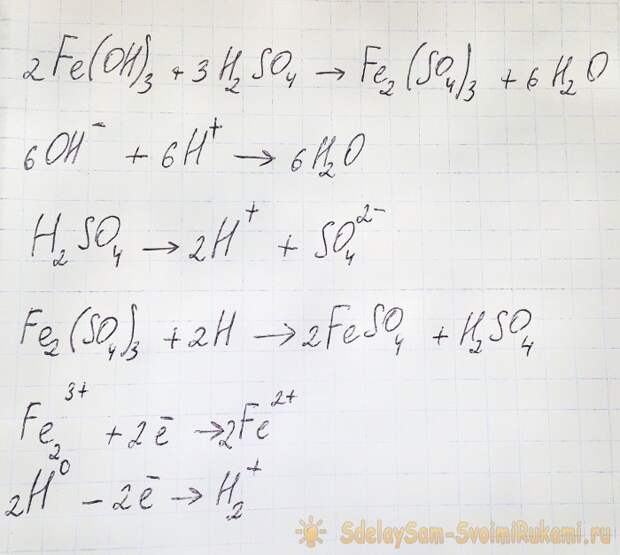 2Fe(OH)₃ + 3H₂SO₄ → Fe₂(SO₄)₃ + 6H₂O
6OH⁻ + 6H⁺ → 6H₂O
H₂SO₄ → 2H⁺ + SO₄²⁻
Fe₂(SO₄)₃ + 2H → 2FeSO₄ + H₂SO₄
Fe₂³⁺ + 2ē → 2Fe²⁺
2H⁰ − 2ē → H₂⁺
SdelaySam-SvoimiRukami.ru